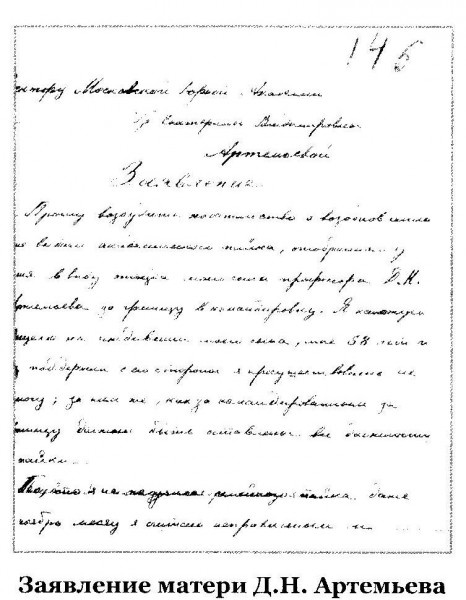 145
ктору Московской Горной Академии
Гр Екатерины Владимировны
Артемьевой
Заявление.
Прошу возбудить ходатайство о возобновлении
академического пайка, отобранного у
ня в виду отъезда моего сына профессора Д.Н.
ртемьева за границу в командировку. Я нахожусь
на иждивении моего сына, мне 58 лет и
поддержки с его стороны я просуществовать не
могу; за ним же, как за командированным за
границу должны быть оставлены все
пайки
пайка даже
ноябрь месяц я считаю неправильным и
Заявление матери Д.Н. Артемьева